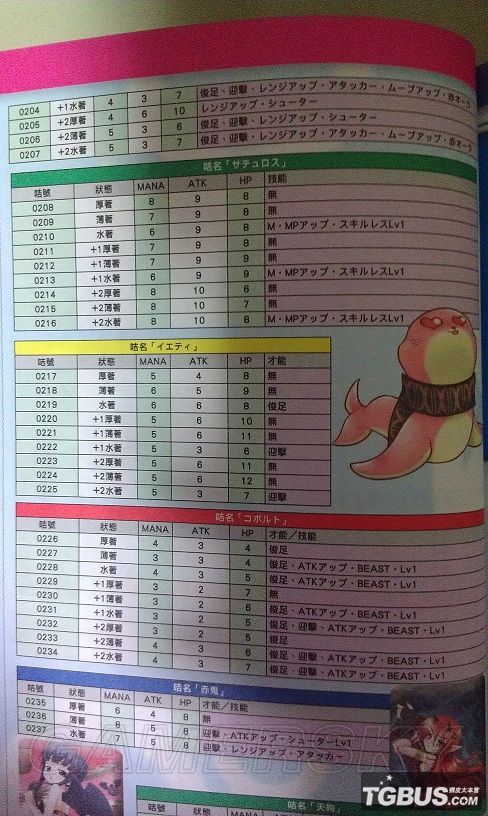 0204 +1水著 4 3 7 俊足、迎擊、レンジアップ・アタッカー、ムーブアップ・赤オーラ
0205 +2厚著 4 6 10 レンジアップ・シューター
0206 +2薄著 5 3 6 俊足、迎擊、レンジアップ・シューター
0207 +2水著 5 3 7 俊足、迎擊、レンジアップ・アタッカー、ムーブアップ・赤オーラ
咭名「サテュロス」
咭號 狀態 MANA ATK HP 技能
0208 厚著 8 9 8 無
0209 薄著 7 9 8 無
0210 水著 6 9 8 M・MPアップ・スキルレスLv1
0211 +1厚著 7 9 8 無
0212 +1薄著 7 9 9 無
0213 +1水著 6 9 9 M・MPアップ・スキルレスLv1
0214 +2厚著 8 10 6 無
0215 +2薄著 8 10 7 無
0216 +2水著 8 10 8 M・MPアップ・スキルレスLv1
咭名「イエティ」
咭號 狀態 MANA ATK HP 才能
0217 厚著 5 4 8 無
0218 薄著 6 5 9 無
0219 水著 6 6 8 俊足
0220 +1厚著 5 6 10 無
0221 +1薄著 5 6 11 無
0222 +1水著 5 3 6 迎擊
0223 +2厚著 5 6 11 無
0224 +2薄著 5 6 12 無
0225 +2水著 5 3 7 迎擊
咭名「コボルト」
咭號 狀態 MANA ATK HP 才能／技能
0226 厚著 4 3 4 俊足
0227 薄著 3 2 4 俊足、ATKアップ・BEAST・Lv1
0228 水著 4 3 5 俊足、ATKアップ・BEAST・Lv1
0229 +1厚著 3 2 7 無
0230 +1薄著 3 2 6 俊足、迎擊、ATKアップ・BEAST・Lv1
0231 +1水著 3 2 5 俊足
0232 +2厚著 3 2 5 俊足、迎擊、ATKアップ・BEAST・Lv1
0233 +2薄著 4 3 6 俊足、迎擊、ATKアップ・BEAST・Lv1
0234 +2水著 4 3 7 俊足、迎擊、ATKアップ・BEAST・Lv1
咭名「赤鬼」
咭號 狀態 MANA ATK HP 才能／技能
0235 厚著 6 4 8 無
0236 薄著 8 5 8 迎擊、ATKアップ・シューターLv1
0237 水著 7 5 8 迎擊、レンジアップ・アタッカー
咭名「天狗」
狀態 MANA ATK HP
TGBUS.com